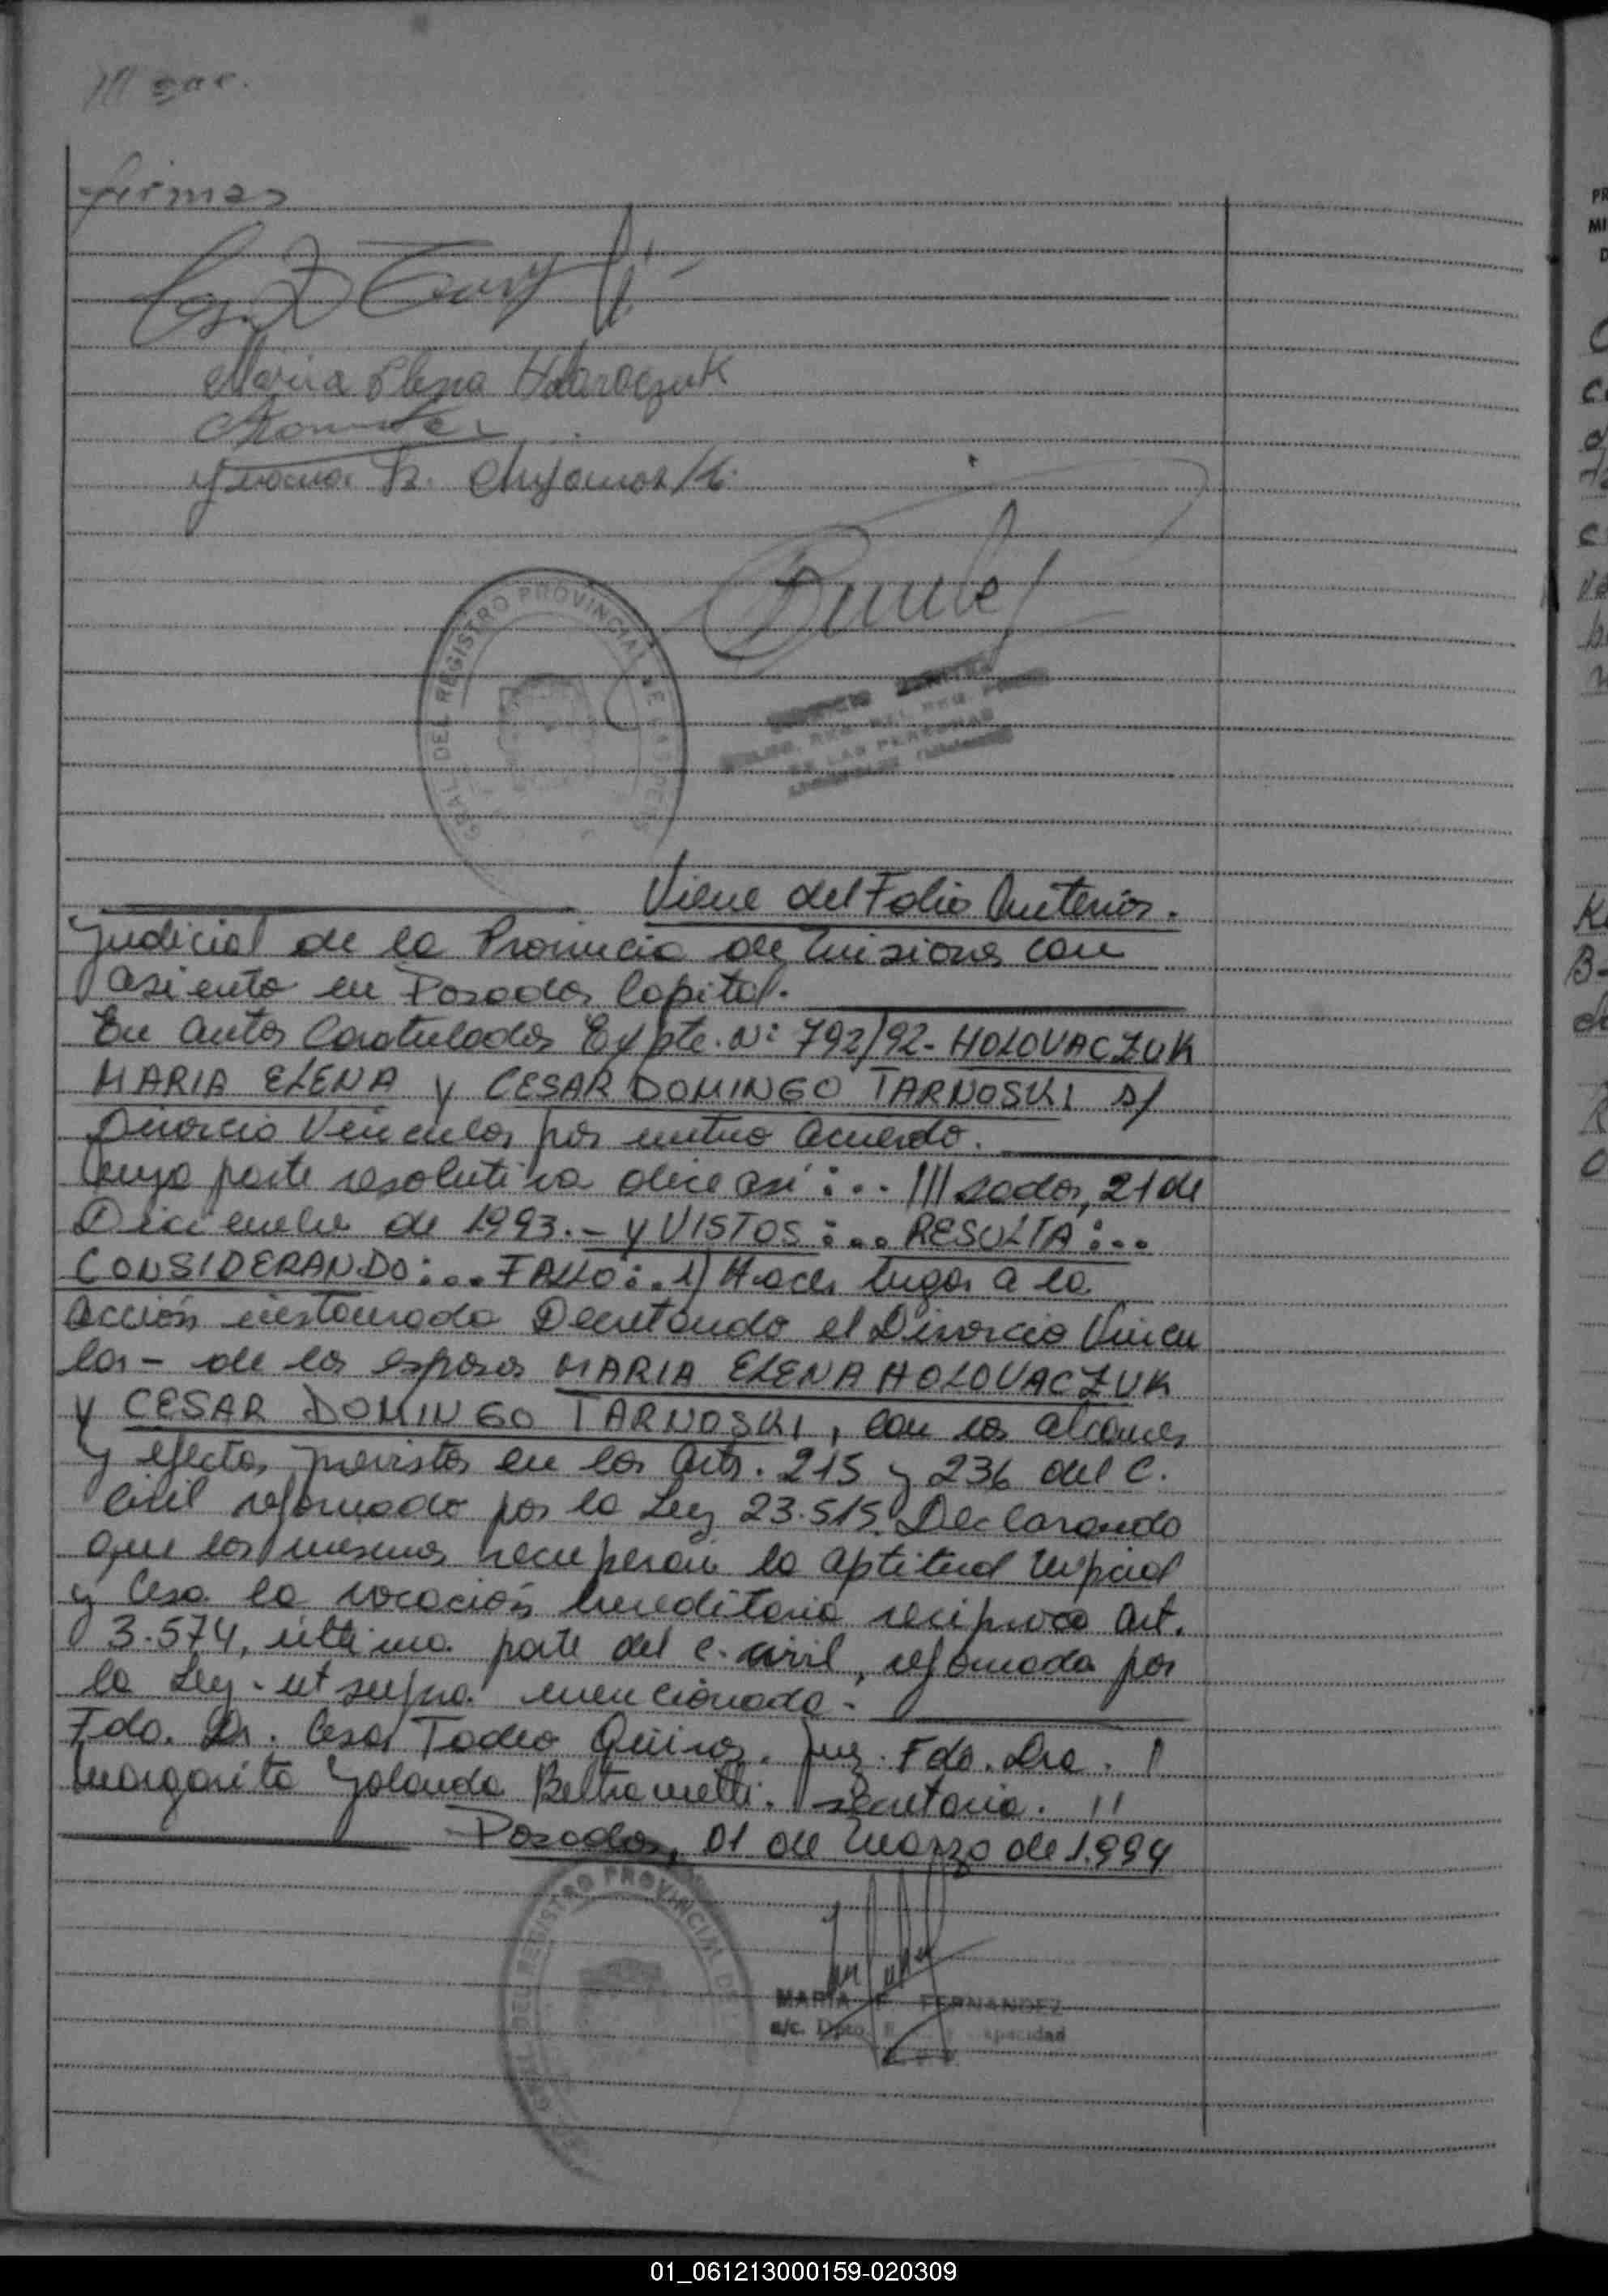 firmas
Maria Elena Holovaczuk
GRAL DEL REGISTRO PROVINCIAL DE LAS PERS
DE LAS PERSONAS
Viene del Folio Anterior.
Judicial de la Provincia de Misiones con
asiento en Posadas Capital.
En autos Caratulados Expte. Nº 792/92- HOLOVACZUK
MARIA ELENA y CESAR DOMINGO TARNOSKI s/
Divorcio Vincular por mutuo acuerdo.
Cuya parte resolutiva dice así:... ///sadas, 21 de
Diciembre de 1993.- y VISTOS:... RESULTA:...
CONSIDERANDO:... FALLO:. 1) Hacer lugar a la
acción instaurada Decretando el Divorcio Vincu
lar- de los esposos MARIA ELENA HOLOVACZUK
y CESAR DOMINGO TARNOSKI, con los alcances
y efectos previstos en los arts. 215 y 236 del C.
Civil reformado por la Ley 23.515. Declarando
que los mismos recuperan la aptitud nupcial
y cesa la vocación hereditaria reciproca art.
3.574, última parte del C. civil, reformada por
la Ley- ut supra mencionada-
Fdo. Dr. Cesar Tadeo Quiroz. Juez. Fdo. Dra.
Margarita Yolanda Beltrametti. secretaria. //
Posadas, 01 de Marzo de 1.994
REGISTRO PROVINCIAL DE
MARIA F. FERNANDEZ
a/c. Dpto.
01_061213000159-020309